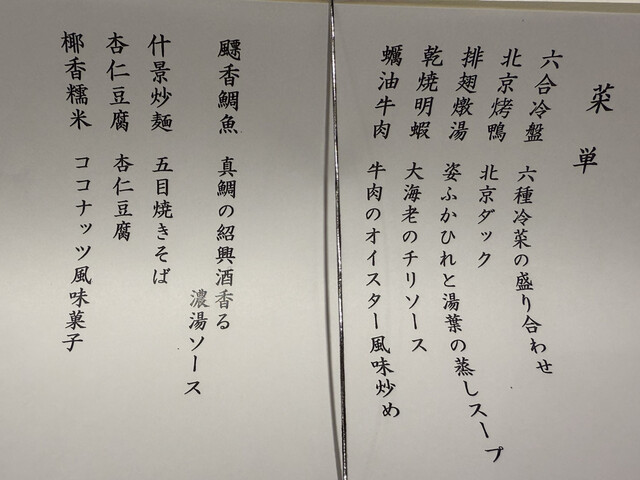 菜単
六合冷盤 六種冷菜の盛り合わせ
北京烤鴨 北京ダック
排翅燉湯 姿ふかひれと湯葉の蒸しスープ
乾焼明蝦 大海老のチリソース
蠣油牛肉 牛肉のオイスター風味炒め
飃香鯛魚 真鯛の紹興酒香る
濃湯ソース
什景炒麺 五目焼きそば
杏仁豆腐 杏仁豆腐
椰香糯米 ココナッツ風味菓子